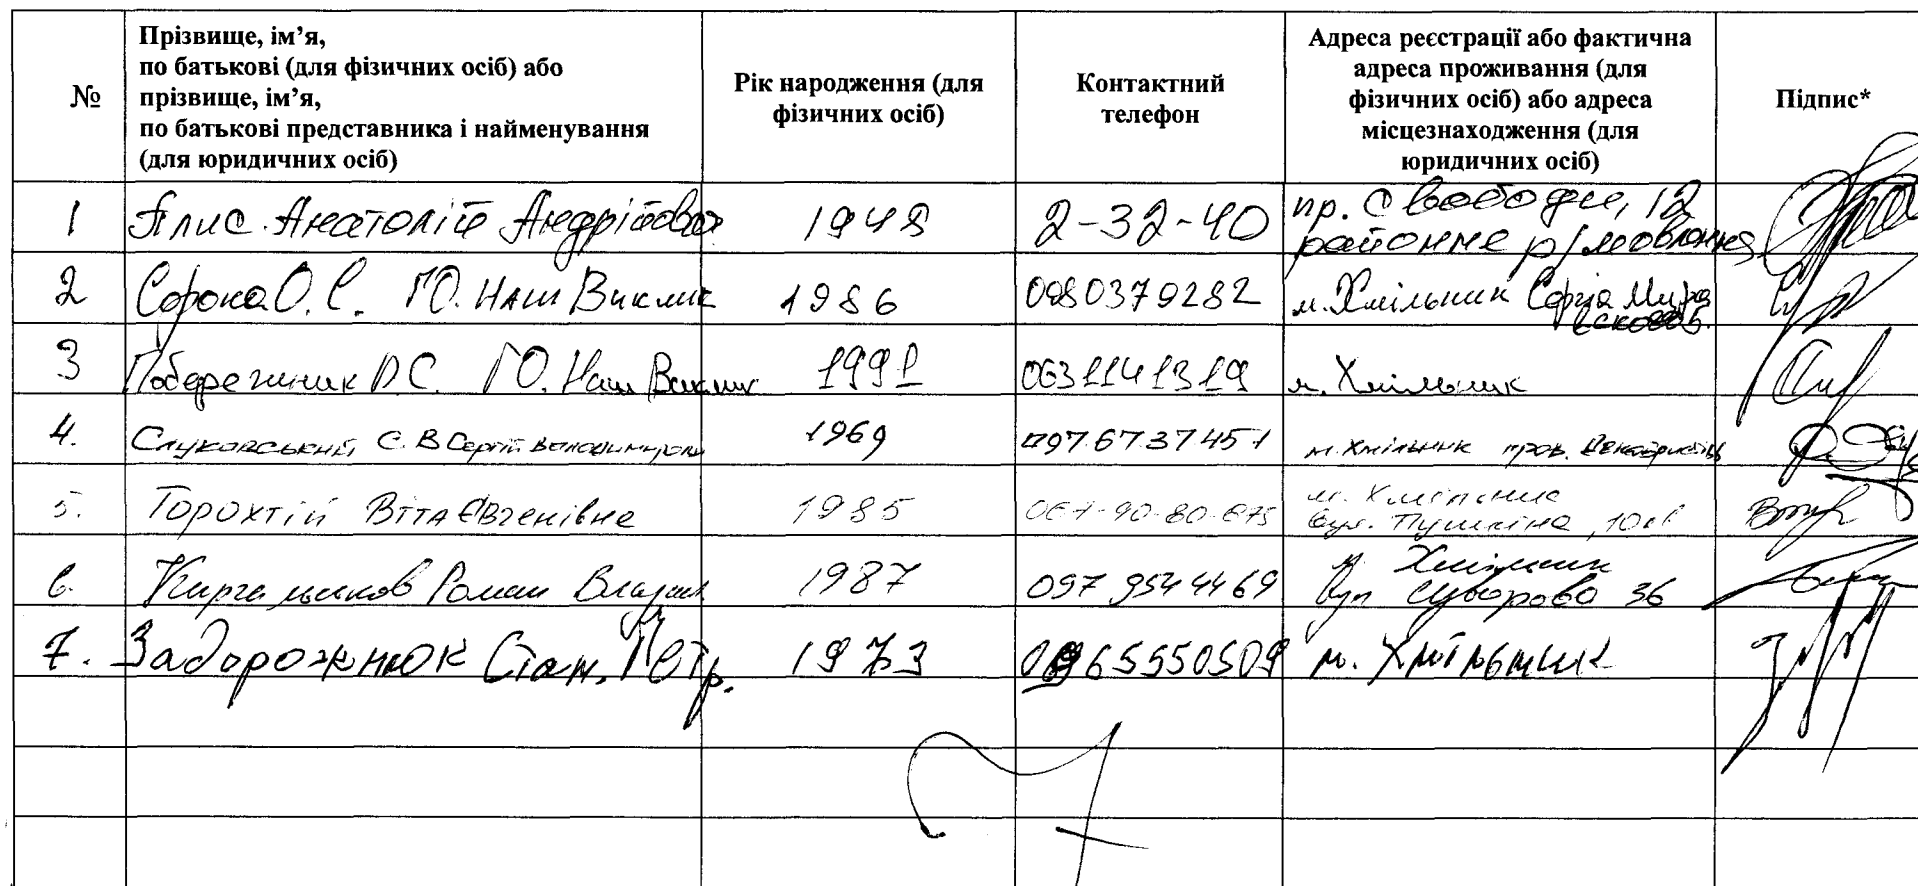 №
Прізвище, ім’я,
по батькові (для фізичних осіб) або
прізвище, ім’я,
по батькові представника і найменування
(для юридичних осіб)
Рік народження (для
фізичних осіб)
Контактний
телефон
Адреса реєстрації або фактична
адреса проживання (для
фізичних осіб) або адреса
місцезнаходження (для
юридичних осіб)
Підпис*
1 Анатолій Андрійович 1948 2-32-40 пр. Свободи, 12
районне
2 Сорока О. С. ГО. Наш Виклик 1986 0980379282 м. Хмільник Сергія
3 Побережник Р С. ГО. Наш Виклик 1991 0631141319 м. Хмільник
4. С. В Сергій Володимирович 1969 0976737451 м. Хмільник пров. Декабристів
5. Торохтій Віта Євгенівна 1985 067-90-80-675 м. Хмільник
вул. Пушкіна, 10
6. Роман 1987 097 954 44 69 Хмільник
вул Суворова 36
7. Задорожнюк Стан. Петр. 1973 0965550509 м. Хмільник